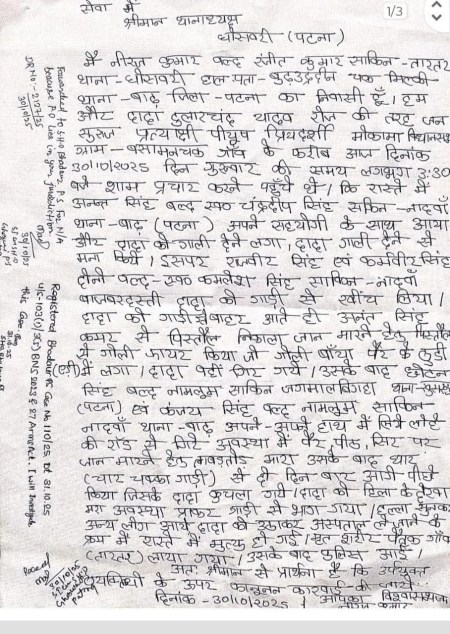 1/3
सेवा में
श्रीमान थानाध्यक्ष
घोसवरी (पटना)
मैं नीरज कुमार वल्द रंजीत कुमार साकिन - तारतर
थाना - घोसवरी हाल पता - चक
थाना - बाढ़ जिला - पटना का निवासी हूँ। हम
और दादा दुलारचंद यादव रोज की तरह जन
सुराज प्रत्याशी पीयूष प्रियदर्शी मोकामा विधानसभा
ग्राम - बसामनचक गाँव के करीब आज दिनांक
30/10/2025 दिन की समय लगभग 3:30
बजे शाम प्रचार करने पहुँचे थे। कि रास्ते में
अनन्त सिंह वल्द स्व० चंद्रदीप सिंह साकिन - नादवाँ
थाना - बाढ़ (पटना) अपने सहयोगी के साथ आया
और दादा को गाली देने लगा, दादा गाली देने से
मना किये। इसपर राजवीर सिंह एवं कर्मवीर सिंह
दोनो वल्द - स्व० कमलेश सिंह साकिन - नादवाँ
दादा को गाड़ी से खींच लिया।
दादा को गाड़ी से बाहर आते ही अनंत सिंह
कमर से पिस्तौल निकाला जान मारने हेतु पिस्तौल
से गोली फायर किया जो गोली बाँया पैर के
में लगा। दादा वहीं गिर गये। उसके बाद छोटन
सिंह वल्द नामलूम साकिन
(पटना) एवं कंजय सिंह वल्द नामलूम साकिन
नादवाँ थाना - बाढ़ अपने - अपने हाथ में लिये लोहे
की रॉड से गिरे अवस्था में पैर, पीठ, सिर पर
जान मारने हेतु मारा उसके बाद थार
(चार चक्का गाड़ी) से दो तीन बार आगे पीछे
किया जिसके दादा कुचला गये। दादा को हिला के देखा
मरा अवस्था गाड़ी से भाग गया। हल्ला सुनकर
अन्य लोग आये दादा को उठाकर अस्पताल ले जाने के
क्रम में रास्ते में मृत्यु हो गई। मृत शरीर पैतृक गाँव
(तारतर) लाया गया। उसके बाद पुलिस आई।
अतः श्रीमान से प्रार्थना है कि उपर्युक्त
के ऊपर कानूनन कारवाई की जाये
दिनांक - 30/10/2025 आपका विश्वासभाजन
नीरज कुमार
Forwarded to SHO Bhadaur P.S. For N/A
because P.O Lies in your jurisdiction.
30/10/25
Registered Bhadaur PS Case No 110/25 Dt 31.10.25
U/S- 103 BNS 2023 & 27 Arms Act. I will Investigate
this Case.